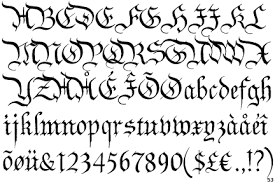 ABCDEFGHIJKL
MNOPQRSTUVWX
YZÀÅÉÎÕØabcdefgh
ijklmnopqrstuvwxyzàåéî
õøü&1234567890($£€.,!?)